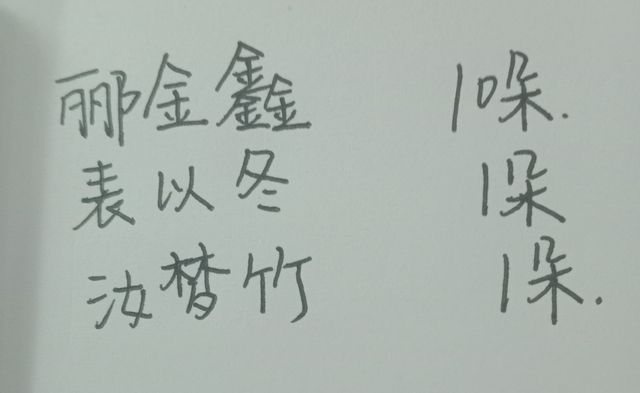 郦金鑫 10朵.
表以冬 1朵
汝梦竹 1朵.